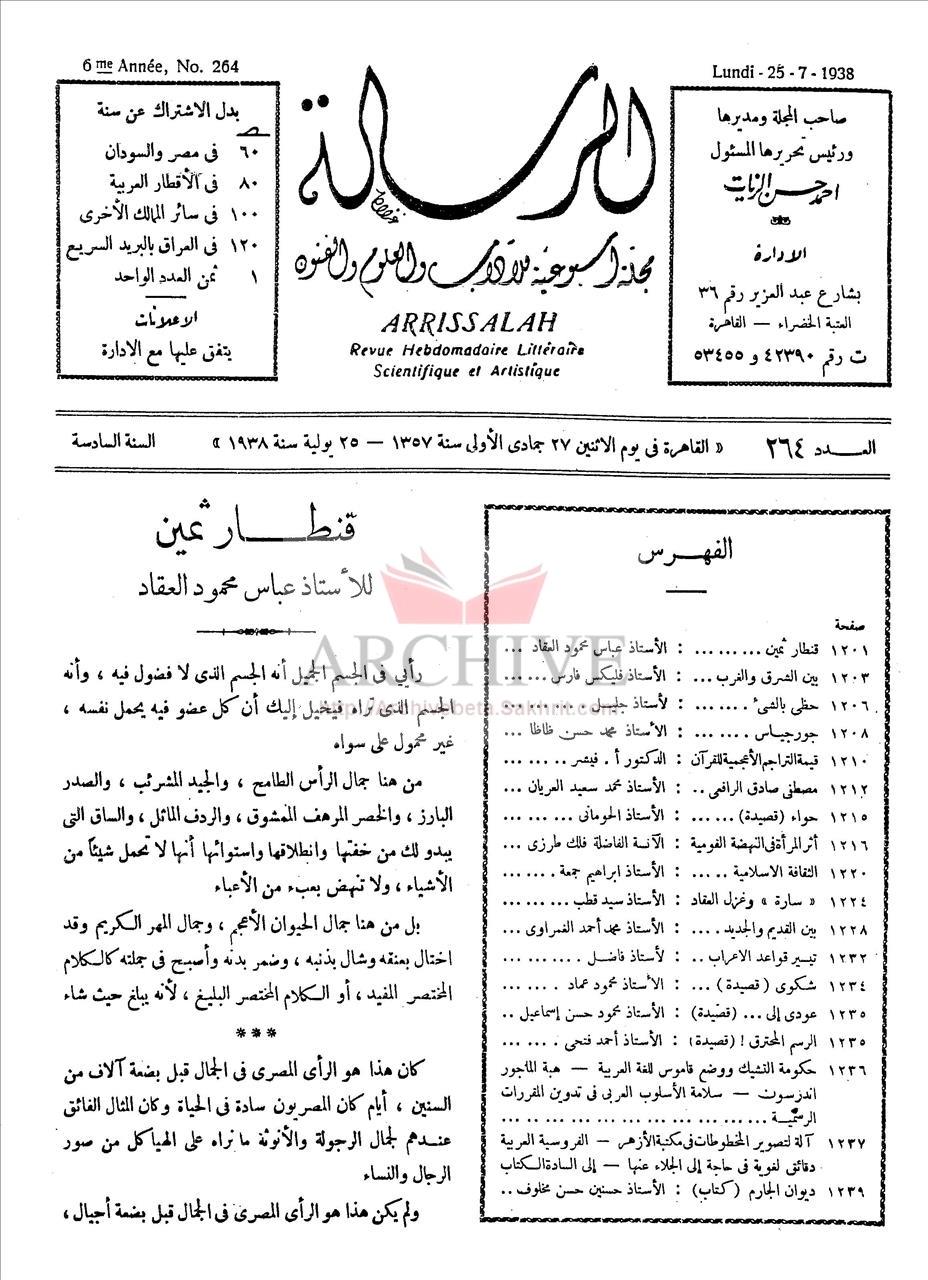 6me Année, No. 264
Lundi - 25 - 7 - 1938
صاحب المجلة ومديرها
ورئيس تحريرها المسئول
احمد حسن الزيات
الادارة
بشارع عبد العزيز رقم ٣٦
العتبة الخضراء — القاهرة
ت رقم ٤٢٣٩٠ و ٥٣٤٥٥
الرسالة
مجلة أسبوعية للآداب والعلوم والفنون
ARRISSALAH
Revue Hebdomadaire Littéraire
Scientifique et Artistique
بدل الاشتراك عن سنة
ص
٦٠ فى مصر والسودان
٨٠ فى الأقطار العربية
١٠٠ فى سائر الممالك الأخرى
١٢٠ فى العراق بالبريد السريع
١ ثمن العدد الواحد
الاعلانات
يتفق عليها مع الادارة
العـــدد ٢٦٤ « القاهرة فى يوم الاثنين ٢٧ جمادى الأولى سنة ١٣٥٧ — ٢٥ يولية سنة ١٩٣٨ » السنة السادسة
الفهرس
صفحة
١٢٠١ قنطار ثمين ... ... ... : الأستاذ عباس محمود العقاد ...
١٢٠٣ بين الشرق والغرب ... : الأستاذ فليكس فارس ... ...
١٢٠٦ حظى بالشئ ... ... : لأستاذ جليـل ... ... ... ...
١٢٠٨ جورجياس ... ... ... : الأستاذ محمد حسن ظاظا ...
١٢١٠ قيمة التراجم الأعجمية للقرآن : الدكتور أ . فيشر ... ... ...
١٢١٢ مصطفى صادق الرافعى .. : الأستاذ محمد سعيد العريان ...
١٢١٥ حواء (قصيدة) ... ... : الأستاذ الحومانى ... ... ...
١٢١٦ أثر المرأة فى النهضة القومية : الآنسة الفاضلة فلك طرزى ..
١٢٢٠ الثقافة الاسلامية ... ... : الأستاذ ابراهيم جمعة ... ...
١٢٢٤ « سارة » وغزل العقاد : الأستاذ سيد قطب ... ... ...
١٢٢٨ بين القديم والجديد ... . : الأستاذ محمد أحمد الغمراوى ...
١٢٣٢ تيسير قواعد الاعراب .. : لأستاذ فاضل ... ... ... ...
١٢٣٤ شكوى ( قصيدة ) ... : الأستاذ محمود عماد ... ...
١٢٣٥ عودى إلى ... (قصيدة) : الأستاذ محمود حسن إسماعيل ..
١٢٣٥ الرسم المحترق ! (قصيدة) : الأستاذ أحمد فتحى ... ...
١٢٣٦ حكومة التشيك ووضع قاموس للغة العربية — هبة الماجور
اندرسون — سلامة الأسلوب العربى فى تدوين المقررات
الرسمية ... ... ... ... ... ... ... ...
١٢٣٧ آلة لتصوير المخطوطات فى مكتبة الأزهر — الفروسية العربية
دقائق لغوية فى حاجة إلى الجلاء عنها — إلى السادة الكتاب
١٢٣٩ ديوان الجارم (كتاب) : الأستاذ حسنين حسن مخلوف ..
قنطــــار ثمين
للأستاذ عباس محمود العقاد
رأيى فى الجسم الجميل أنه الجسم الذى لا فضول فيه ، وأنه
الجسم الذى تراه فيخيل إليك أن كل عضو فيه يحمل نفسه ،
غير محمول على سواه
من هنا جمال الرأس الطامح ، والجيد المشرئب ، والصدر
البارز ، والخصر المرهف الممشوق ، والردف الماثل ، والساق التى
يبدو لك من خفتها وانطلاقها واستوائها أنها لا تحمل شيئاً من
الأشياء ، ولا تنهض بعبء من الأعباء
بل من هنا جمال الحيوان الأعجم ، وجمال المهر الكريم وقد
اختال بعنقه وشال بذنبه ، وضمر بدنه وأصبح فى جملته كالكلام
المختصر المفيد ، أو الكلام المختصر البليغ ، لأنه يبلغ حيث شاء
***
كان هذا هو الرأى المصرى فى الجمال قبل بضعة آلاف من
السنين ، أيام كان المصريون سادة فى الحياة وكان المثال الفائق
عندهم لجمال الرجولة والأنوثة ما نراه على الهياكل من صور
الرجال والنساء
ولم يكن هذا هو الرأى المصرى فى الجمال قبل بضعة أجيال ،
ARCHIVE
http://Archivebeta.Sakhrit.com